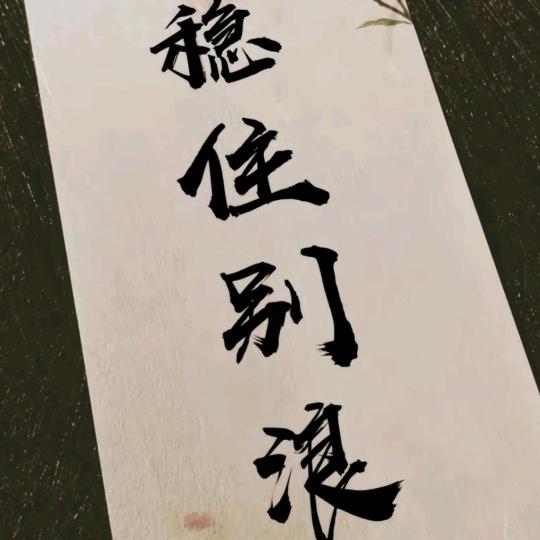 稳住别浪